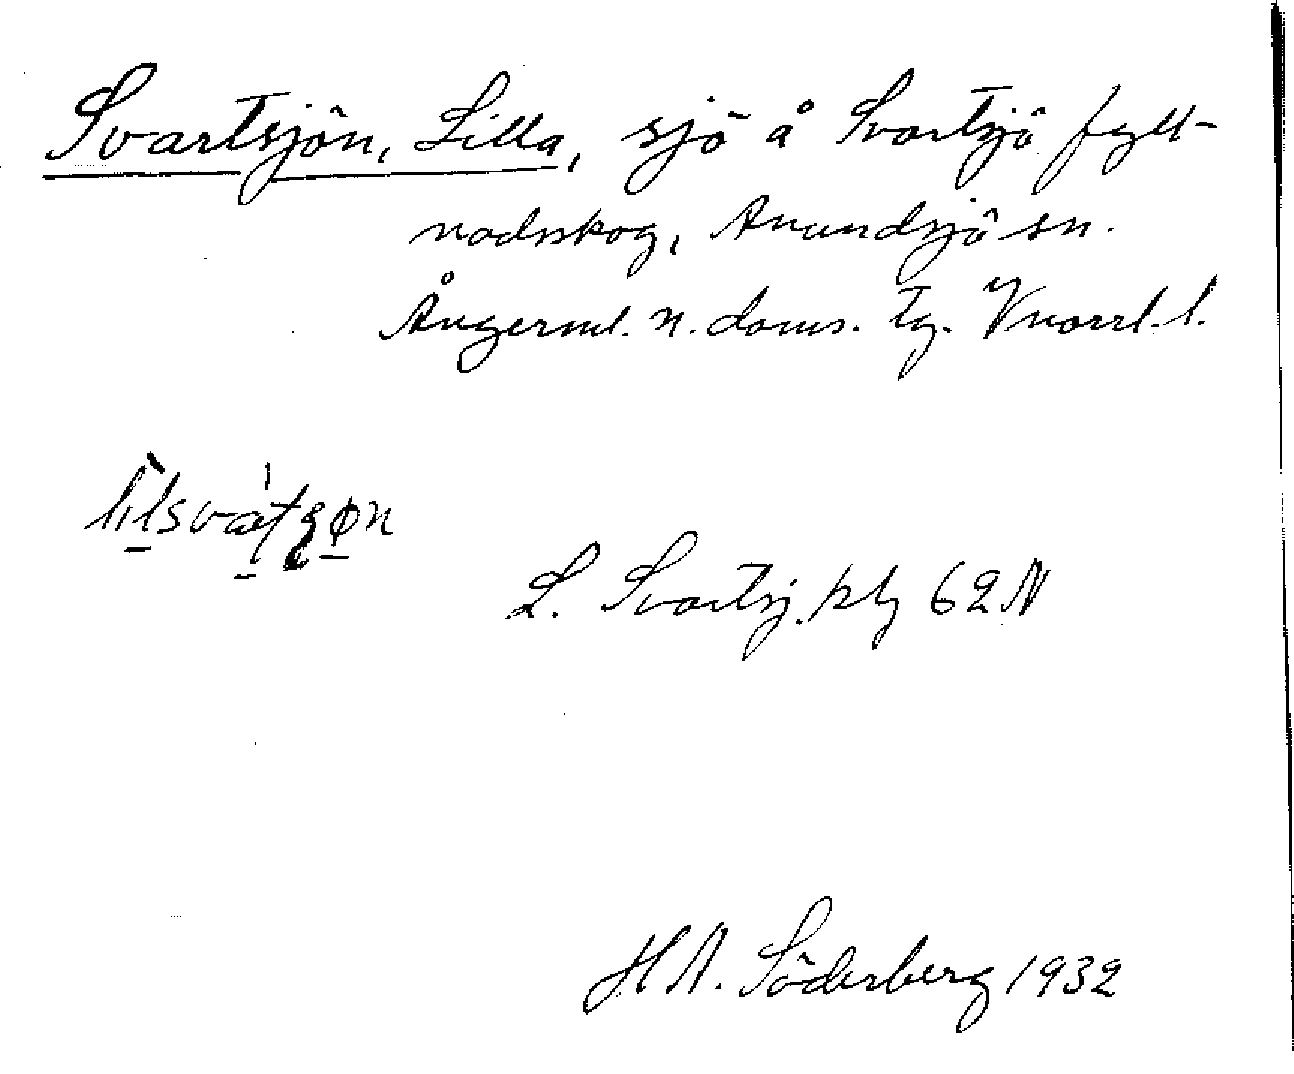 Svartsjön, Lilla, sjö å Svartsjö fyll-
nadsskog, Anundsjö sn.
Ångerml. n. doms. tg. Vnorrl. l.
L. Svartsj. ktg 62 N
H A. Söderberg 1932